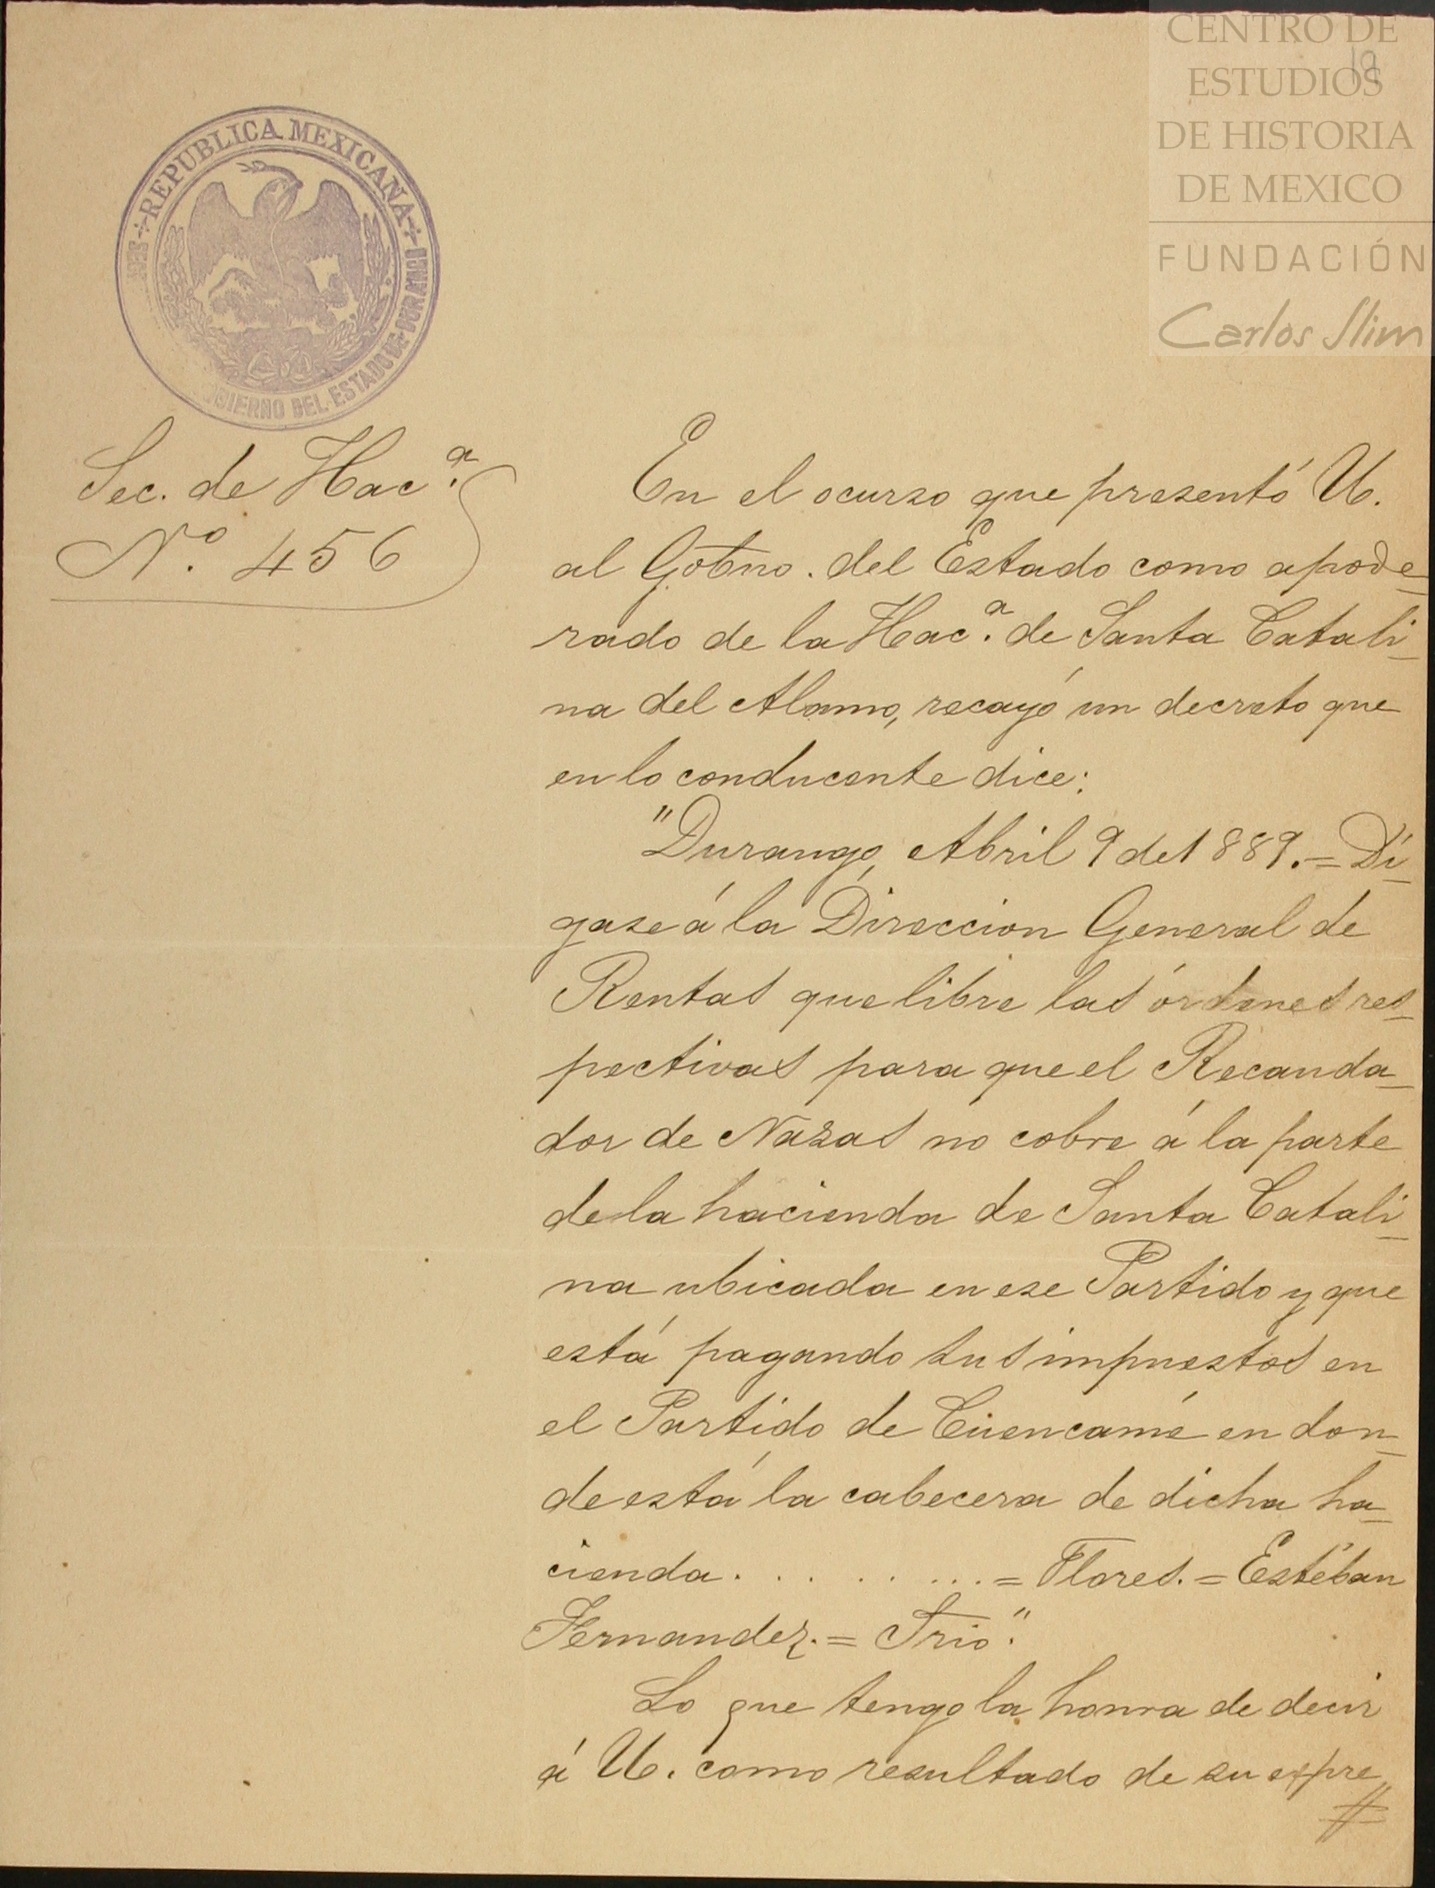 CENTRO DE
ESTUDIOS
DE HISTORIA
DE MEXICO
FUNDACIÓN
Carlos Slim
19
REPUBLICA MEXICANA
GOBIERNO DEL ESTADO DE DURANGO
Sec. de Hac.ª
N.º 456
En el ocurso que presentó U.
al Gobno. del Estado como apode_
rado de la Hac.ª de Santa Catali_
na del Alamo, recayó un decreto que
en lo conducente dice:
"Durango, Abril 9 de 1889. = Dí_
gase á la Direccion General de
Rentas que libre las órdenes res_
pectivas para que el Recauda_
dor de Nazas no cobre á la parte
de la hacienda de Santa Catali_
na ubicada en ese Partido y que
está pagando sus impuestos en
el Partido de Cuencamé en don_
de está la cabecera de dicha ha_
cienda. . . . . . . . . = Flores. = Estéban
Fernandez. = Srio."
Lo que tengo la honra de decir
á U. como resultado de su espre